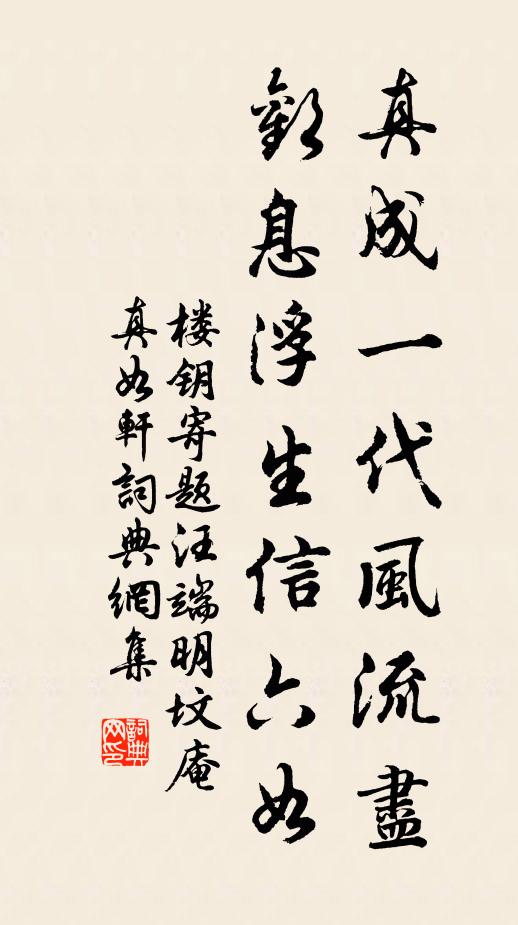 真成一代風流盡
歎息浮生信六如
楼钥寄题汪端明坟庵
真如軒詞典網集
詞典
网印